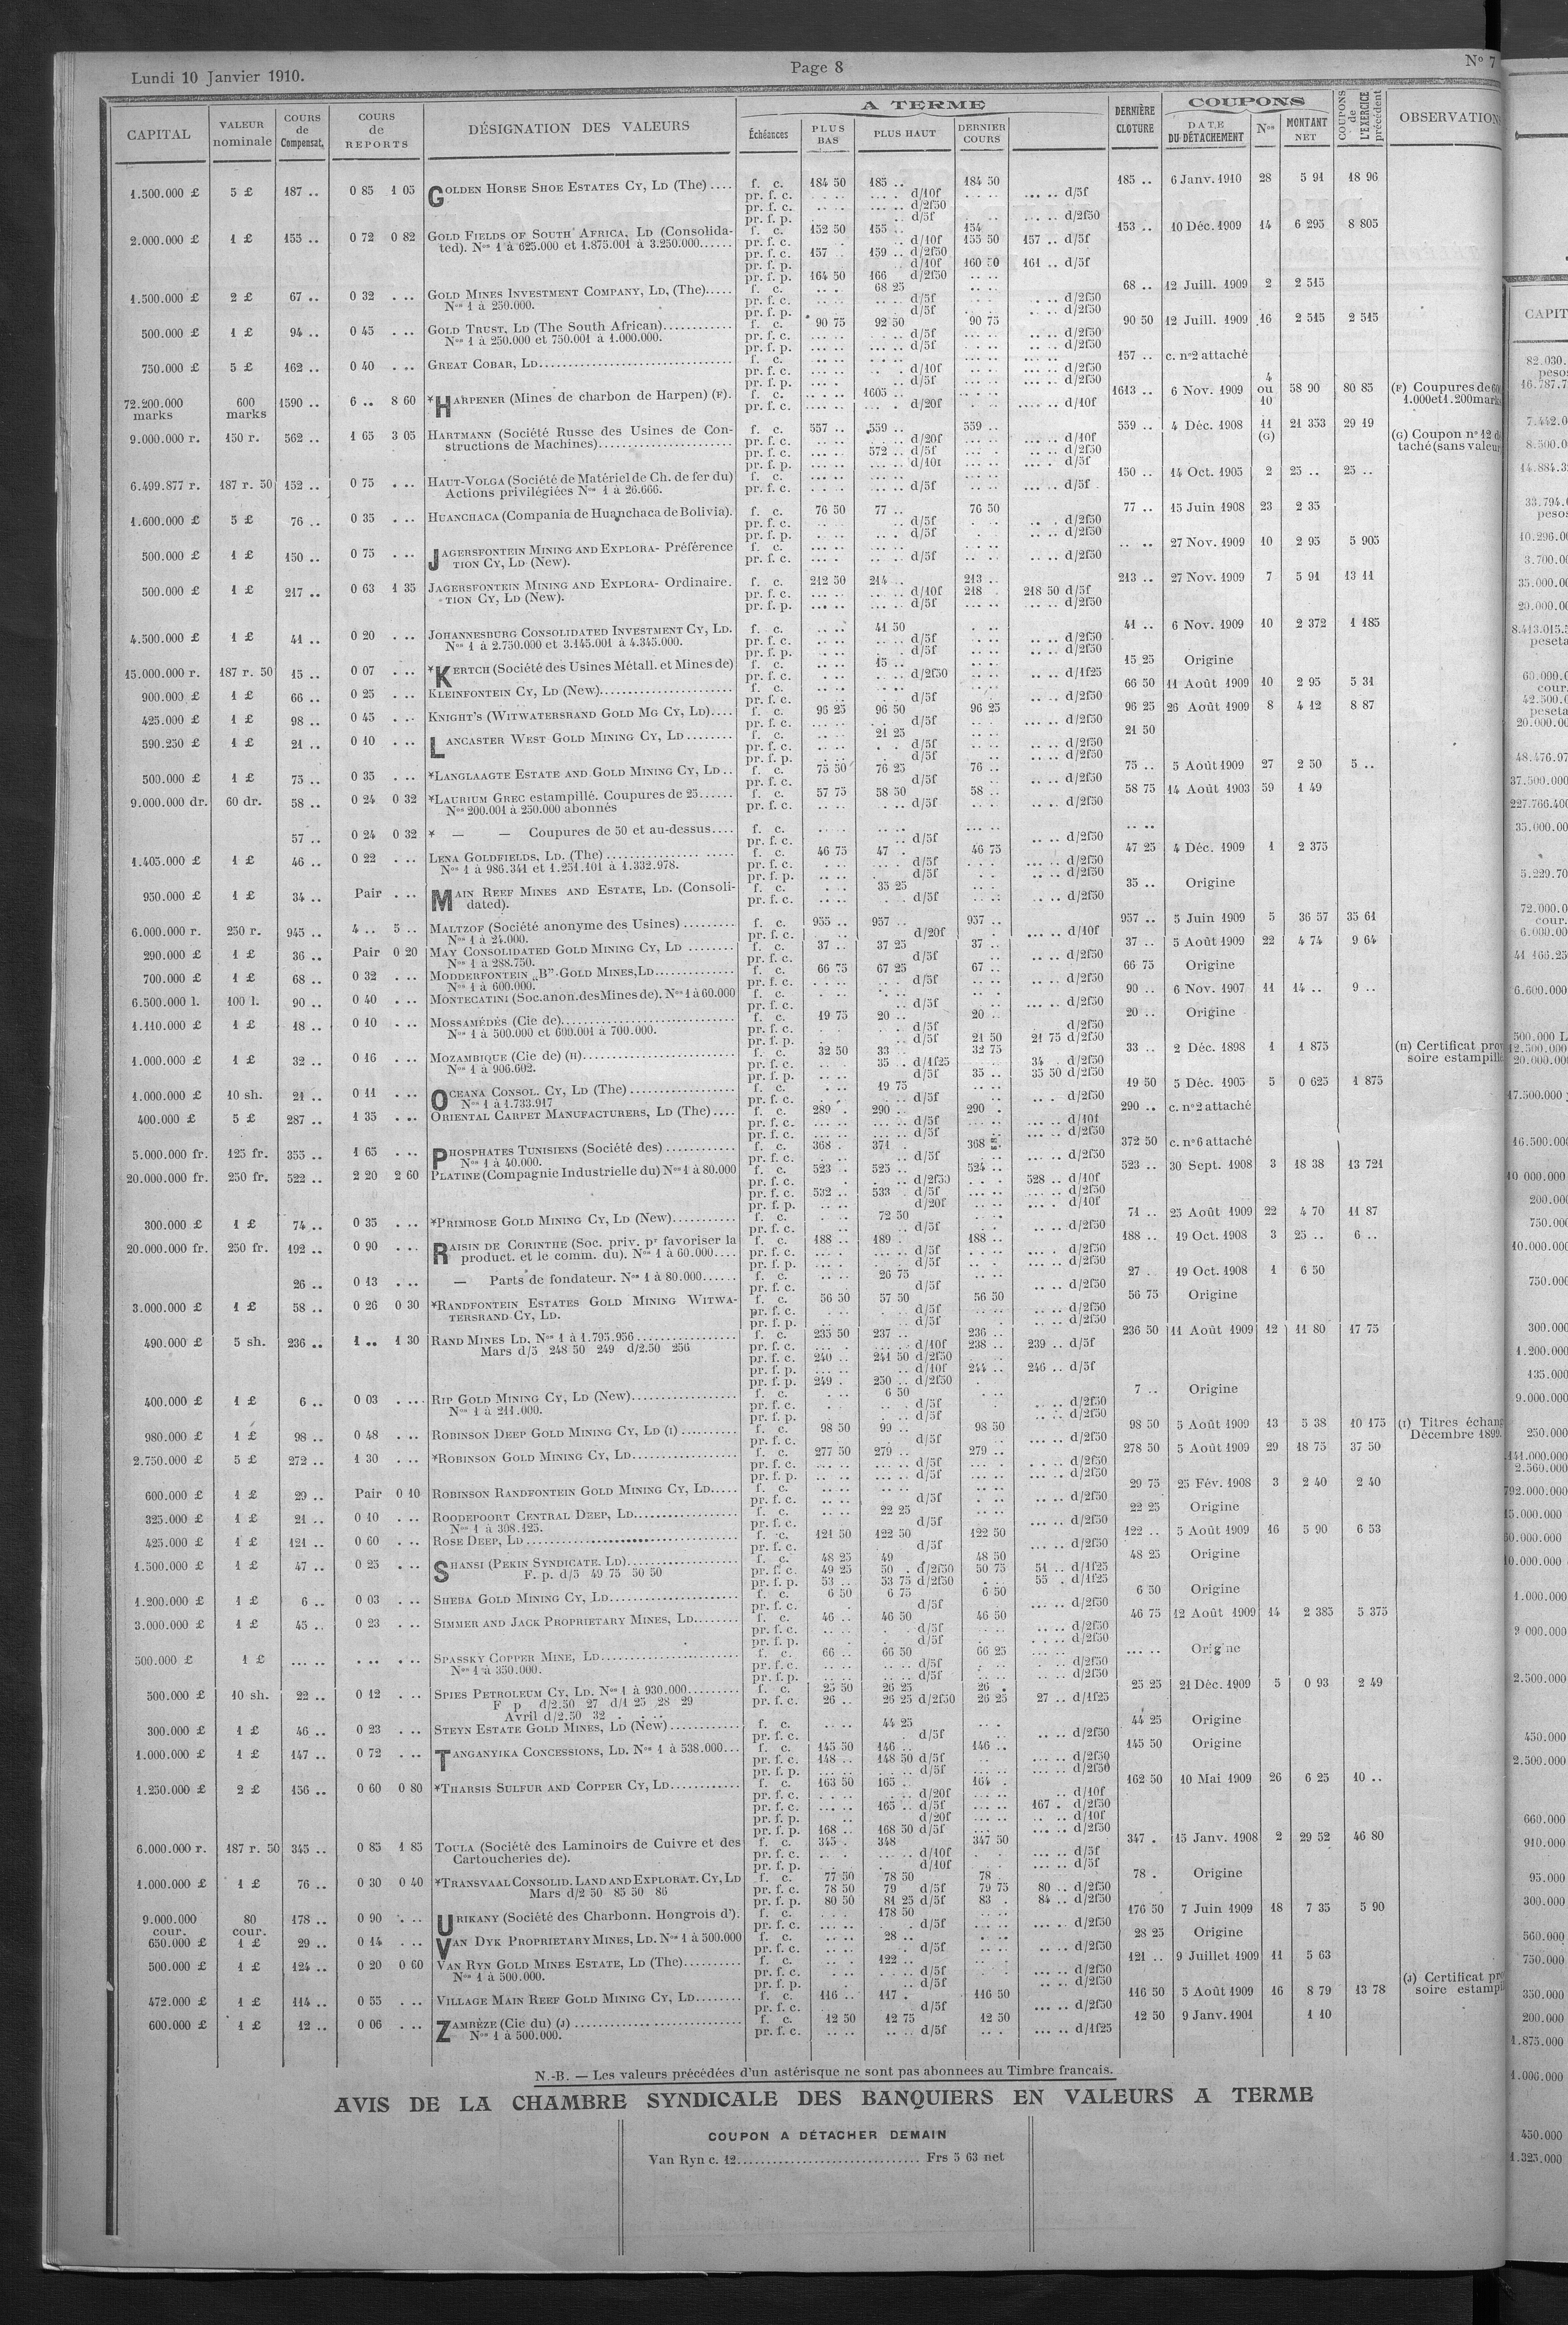 Lundi 10 Janvier 1910.
Page 8
N° 7
CAPITAL
VALEUR nominale
COURS de Compensat.
COURS de REPORTS
DÉSIGNATION DES VALEURS
A TERME
Échéances
PLUS BAS
PLUS HAUT
DERNIER COURS
DERNIÈRE CLOTURE
COUPONS
DATE DU DÉTACHEMENT
Nos
MONTANT NET
COUPONS de L'EXERCICE précédent
OBSERVATION
1.500.000 £ 5 £ 187 .. 0 85 1 05 GOLDEN HORSE SHOE ESTATES CY, LD (The) .... f. c. 184 50 185 .. 184 50 185 .. 6 Janv. 1910 28 5 91 18 96
pr. f. c. d/10f d/5f
pr. f. c. d/2f50
pr. f. p. d/5f d/2f50
2.000.000 £ 1 £ 155 .. 0 72 0 82 GOLD FIELDS OF SOUTH AFRICA, LD (Consolida- f. c. 152 50 155 .. 154 153 .. 10 Déc. 1909 14 6 295 8 805
ted). Nos 1 à 625.000 et 1.875.001 à 3.250.000...... pr. f. c. d/10f 155 50 157 .. d/5f
pr. f. c. 157 . 159 .. d/2f50
pr. f. p. d/10f 160 50 161 .. d/5f
pr. f. p. 164 50 166 d/2f50
1.500.000 £ 2 £ 67 .. 0 32 . .. GOLD MINES INVESTMENT COMPANY, LD, (The)..... f. c. 68 25 68 .. 12 Juill. 1909 2 2 515
Nos 1 à 250.000. pr. f. c. d/5f d/2f50
pr. f. p. d/5f d/2f50
500.000 £ 1 £ 94 .. 0 45 . .. GOLD TRUST, LD (The South African)............ f. c. 90 75 92 50 90 75 90 50 12 Juill. 1909 16 2 515 2 515
Nos 1 à 250.000 et 750.001 à 1.000.000. pr. f. c. d/5f d/2f50
pr. f. p. d/5f d/2f50
750.000 £ 5 £ 162 .. 0 40 . .. GREAT COBAR, LD............ f. c. 157 .. c. n°2 attaché
pr. f. c. d/10f d/2f50
pr. f. p. d/5f d/2f50
72.200.000 marks 600 marks 1590 .. 6 .. 8 60 *HARPENER (Mines de charbon de Harpen) (F). f. c. 1605 .. 1613 .. 6 Nov. 1909 4 ou 10 58 90 80 85 (F) Coupures de
pr. f. c. d/20f d/10f 1.000 et 1.200 marks
9.000.000 r. 150 r. 562 .. 1 65 3 05 HARTMANN (Société Russe des Usines de Con- f. c. 557 .. 559 .. 559 .. 559 .. 4 Déc. 1908 11 (G) 21 353 29 19 (G) Coupon n° 12 dé
structions de Machines)............ pr. f. c. d/20f d/10f taché (sans valeur
pr. f. c. 572 .. d/5f d/2f50
pr. f. p. d/10f d/5f
6.499.877 r. 187 r. 50 152 .. 0 75 . .. HAUT-VOLGA (Société de Matériel de Ch. de fer du) f. c. 150 .. 14 Oct. 1905 2 25 .. 25 ..
Actions privilégiées Nos 1 à 26.666. pr. f. c. d/5f d/5f
1.600.000 £ 5 £ 76 .. 0 35 . .. HUANCHACA (Compania de Huanchaca de Bolivia). f. c. 76 50 77 .. 76 50 77 .. 15 Juin 1908 23 2 35
pr. f. c. d/5f d/2f50
pr. f. p. d/5f d/2f50
500.000 £ 1 £ 150 .. 0 75 . .. JAGERSFONTEIN MINING AND EXPLORA- Préférence f. c. 27 Nov. 1909 10 2 95 5 905
TION CY, LD (New). pr. f. c. d/5f d/2f50
500.000 £ 1 £ 217 .. 0 63 1 35 JAGERSFONTEIN MINING AND EXPLORA- Ordinaire. f. c. 212 50 214 .. 213 .. 213 .. 27 Nov. 1909 7 5 91 13 11
TION CY, LD (New). pr. f. c. d/10f 218 . 218 50 d/5f
pr. f. p. d/5f d/2f50
4.500.000 £ 1 £ 41 .. 0 20 . .. JOHANNESBURG CONSOLIDATED INVESTMENT CY, LD. f. c. 41 50 41 .. 6 Nov. 1909 10 2 372 1 185
Nos 1 à 2.750.000 et 3.145.001 à 4.345.000. pr. f. c. d/5f d/2f50
pr. f. p. d/5f d/2f50
15.000.000 r. 187 r. 50 15 .. 0 07 . .. *KERTCH (Société des Usines Métall. et Mines de) f. c. 15 .. 15 25 Origine
pr. f. c. d/2f50 d/1f25
900.000 £ 1 £ 66 .. 0 25 . .. KLEINFONTEIN CY, LD (New)............ f. c. 66 50 11 Août 1909 10 2 95 5 31
pr. f. c. d/5f d/2f50
425.000 £ 1 £ 98 .. 0 45 . .. KNIGHT'S (WITWATERSRAND GOLD MG CY, LD).... f. c. 96 25 96 50 96 25 96 25 26 Août 1909 8 4 12 8 87
pr. f. c. d/5f d/2f50
590.250 £ 1 £ 21 .. 0 10 . .. LANCASTER WEST GOLD MINING CY, LD ........ f. c. 21 25 21 50
pr. f. c. d/5f d/2f50
pr. f. p. d/5f d/2f50
500.000 £ 1 £ 75 .. 0 35 . .. *LANGLAAGTE ESTATE AND GOLD MINING CY, LD .. f. c. 75 50 76 25 76 .. 75 .. 5 Août 1909 27 2 50 5 ..
pr. f. c. d/5f d/2f50
9.000.000 dr. 60 dr. 58 .. 0 24 0 32 *LAURIUM GREC estampillé. Coupures de 25...... f. c. 57 75 58 50 58 .. 58 75 14 Août 1903 59 1 49
Nos 200.001 à 250.000 abonnés pr. f. c. d/5f d/2f50
57 .. 0 24 0 32 * — — Coupures de 50 et au-dessus.... f. c.
pr. f. c. d/5f d/2f50
1.405.000 £ 1 £ 46 .. 0 22 . .. LENA GOLDFIELDS, LD. (The) ............ f. c. 46 75 47 . 46 75 47 25 4 Déc. 1909 1 2 375
Nos 1 à 986.341 et 1.251.101 à 1.332.978. pr. f. c. d/5f d/2f50
pr. f. p. d/5f d/2f50
950.000 £ 1 £ 34 .. Pair . .. MAIN REEF MINES AND ESTATE, LD. (Consoli- f. c. 35 25 35 .. Origine
dated). pr. f. c. d/5f d/2f50
6.000.000 r. 250 r. 945 .. 4 .. 5 .. MALTZOF (Société anonyme des Usines) ......... f. c. 955 .. 957 .. 957 .. 957 .. 5 Juin 1909 5 36 57 35 61
Nos 1 à 24.000. pr. f. c. d/20f d/10f
290.000 £ 1 £ 36 .. Pair 0 20 MAY CONSOLIDATED GOLD MINING CY, LD ........ f. c. 37 .. 37 25 37 .. 37 .. 5 Août 1909 22 4 74 9 64
Nos 1 à 288.750. pr. f. c. d/5f d/2f50
700.000 £ 1 £ 68 .. 0 32 . .. MODDERFONTEIN „B” GOLD MINES, LD............ f. c. 66 75 67 25 67 .. 66 75 Origine
Nos 1 à 600.000. pr. f. c. d/5f d/2f50
6.500.000 l. 100 l. 90 .. 0 40 . .. MONTECATINI (Soc. anon. des Mines de). Nos 1 à 60.000 f. c. 90 .. 6 Nov. 1907 11 14 .. 9 ..
pr. f. c. d/5f d/2f50
1.110.000 £ 1 £ 18 .. 0 10 . .. MOSSAMÉDÈS (Cie de)............ f. c. 19 75 20 .. 20 .. 20 .. Origine
Nos 1 à 500.000 et 600.001 à 700.000. pr. f. c. d/5f d/2f50
pr. f. p. d/5f 21 50 21 75 d/2f50
1.000.000 £ 1 £ 32 .. 0 16 . .. MOZAMBIQUE (Cie de) (H)............ f. c. 32 50 33 .. 32 75 33 .. 2 Déc. 1898 1 1 875 (H) Certificat pro
Nos 1 à 906.602. pr. f. c. 35 .. d/1f25 34 . d/2f50 soire estampill
pr. f. p. d/5f 35 .. 35 50 d/2f50
1.000.000 £ 10 sh. 21 .. 0 11 . .. OCEANA CONSOL. CY, LD (The) ............ f. c. 19 75 19 50 5 Déc. 1905 5 0 625 1 875
Nos 1 à 1.733.917 pr. f. c. d/5f d/2f50
400.000 £ 5 £ 287 .. 1 35 . .. ORIENTAL CARPET MANUFACTURERS, LD (The) .... f. c. 289 . 290 .. 290 . 290 .. c. n°2 attaché
pr. f. c. d/5f d/10f
pr. f. c. d/5f d/2f50
5.000.000 fr. 125 fr. 355 .. 1 65 . .. PHOSPHATES TUNISIENS (Société des) ............ f. c. 368 . 371 . 368 372 50 c. n°6 attaché
Nos 1 à 40.000. pr. f. c. d/5f d/2f50
20.000.000 fr. 250 fr. 522 .. 2 20 2 60 PLATINE (Compagnie Industrielle du) Nos 1 à 80.000 f. c. 523 .. 525 .. 524 .. 523 .. 30 Sept. 1908 3 18 38 13 721
pr. f. c. d/2f50 528 .. d/10f
pr. f. c. 532 .. 533 . d/5f d/2f50
pr. f. p. d/20f d/10f
300.000 £ 1 £ 74 .. 0 35 . .. *PRIMROSE GOLD MINING CY, LD (New)............ f. c. 72 50 71 .. 25 Août 1909 22 4 70 11 87
pr. f. c. d/5f d/2f50
20.000.000 fr. 250 fr. 192 .. 0 90 . .. RAISIN DE CORINTHE (Soc. priv. pr favoriser la f. c. 188 .. 189 . 188 .. 188 .. 19 Oct. 1908 3 25 .. 6 ..
product. et le comm. du). Nos 1 à 60.000.... pr. f. c. d/5f d/2f50
pr. f. p. d/5f d/2f50
26 .. 0 13 . .. — Parts de fondateur. Nos 1 à 80.000...... f. c. 26 75 27 . 19 Oct. 1908 1 6 50
pr. f. c. d/5f d/2f50
3.000.000 £ 1 £ 58 .. 0 26 0 30 *RANDFONTEIN ESTATES GOLD MINING WITWA- f. c. 56 50 57 50 56 50 56 75 Origine
TERSRAND CY, LD. pr. f. c. d/5f d/2f50
pr. f. p. d/5f d/2f50
490.000 £ 5 sh. 236 .. 1 .. 1 30 RAND MINES LD. Nos 1 à 1.795.956............ f. c. 235 50 237 .. 236 .. 236 50 11 Août 1909 12 11 80 17 75
Mars d/5 248 50 249 d/2.50 256 pr. f. c. d/10f 238 .. 239 .. d/5f
pr. f. c. 240 .. 241 50 d/2f50
pr. f. p. d/10f 244 .. 246 .. d/5f
pr. f. p. 249 . 250 .. d/2f50
400.000 £ 1 £ 6 .. 0 03 . .. RIP GOLD MINING CY, LD (New)............ f. c. 6 50 7 .. Origine
Nos 1 à 211.000. pr. f. c. d/5f d/2f50
pr. f. p. d/5f d/2f50
980.000 £ 1 £ 98 .. 0 48 . .. ROBINSON DEEP GOLD MINING CY, LD (I) .......... f. c. 98 50 99 .. 98 50 98 50 5 Août 1909 13 5 38 10 175 (I) Titres échan
pr. f. c. d/5f d/2f50 Décembre 1899.
2.750.000 £ 5 £ 272 .. 1 30 . .. *ROBINSON GOLD MINING CY, LD............ f. c. 277 50 279 .. 279 .. 278 50 5 Août 1909 29 18 75 37 50
pr. f. c. d/5f d/2f50
pr. f. p. d/5f d/2f50
600.000 £ 1 £ 29 .. Pair 0 10 ROBINSON RANDFONTEIN GOLD MINING CY, LD..... f. c. 29 75 25 Fév. 1908 3 2 40 2 40
pr. f. c. d/5f d/2f50
325.000 £ 1 £ 21 .. 0 10 . .. ROODEPOORT CENTRAL DEEP, LD............ f. c. 22 25 22 25 Origine
Nos 1 à 308.125. pr. f. c. d/5f d/2f50
425.000 £ 1 £ 121 .. 0 60 . .. ROSE DEEP, LD............ f. c. 121 50 122 50 122 50 122 .. 5 Août 1909 16 5 90 6 53
pr. f. c. d/5f d/2f50
1.500.000 £ 1 £ 47 .. 0 25 . .. SHANSI (PEKIN SYNDICATE. LD)............ f. c. 48 25 49 48 50 48 25 Origine
F. p. d/5 49 75 50 50 pr. f. c. 49 25 50 . d/2f50 50 75 51 .. d/1f25
pr. f. p. 53 .. 53 75 d/2f50 55 . d/1f25
1.200.000 £ 1 £ 6 .. 0 03 . .. SHEBA GOLD MINING CY, LD............ f. c. 6 50 6 75 6 50 6 50 Origine
pr. f. c. d/5f d/2f50
3.000.000 £ 1 £ 45 .. 0 23 . .. SIMMER AND JACK PROPRIETARY MINES, LD........ f. c. 46 .. 46 50 46 50 46 75 12 Août 1909 14 2 385 5 375
pr. f. c. d/5f d/2f50
pr. f. p. d/5f d/2f50
500.000 £ 1 £ SPASSKY COPPER MINE, LD............ f. c. 66 .. 66 50 66 25 Origine
Nos 1 à 350.000. pr. f. c. d/5f d/2f50
pr. f. p. d/5f d/2f50
500.000 £ 10 sh. 22 .. 0 12 . .. SPIES PETROLEUM CY, LD. Nos 1 à 930.000......... f. c. 25 50 26 25 26 . 25 25 21 Déc. 1909 5 0 93 2 49
F p d/2.50 27 d/1 25 28 29 pr. f. c. 26 .. 26 25 d/2f50 26 25 27 .. d/1f25
Avril d/2.50 32
300.000 £ 1 £ 46 .. 0 23 . .. STEYN ESTATE GOLD MINES, LD (New)............ f. c. 44 25 44 25 Origine
pr. f. c. d/5f d/2f50
1.000.000 £ 1 £ 147 .. 0 72 . .. TANGANYIKA CONCESSIONS, LD. Nos 1 à 538.000... f. c. 145 50 146 .. 146 .. 145 50 Origine
pr. f. c. 148 .. 148 50 d/5f d/2f50
pr. f. p. d/5f d/2f50
1.250.000 £ 2 £ 156 .. 0 60 0 80 *THARSIS SULFUR AND COPPER CY, LD............ f. c. 163 50 165 . 164 . 162 50 10 Mai 1909 26 6 25 10 ..
pr. f. c. d/20f d/10f
pr. f. c. 165 .. d/5f 167 . d/2f50
pr. f. p. d/20f d/10f
pr. f. p. 168 .. 168 50 d/5f d/2f50
6.000.000 r. 187 r. 50 345 .. 0 85 1 85 TOULA (Société des Laminoirs de Cuivre et des f. c. 345 . 348 347 50 347 . 15 Janv. 1908 2 29 52 46 80
Cartoucheries de). pr. f. c. d/10f d/5f
pr. f. p. d/10f d/5f
1.000.000 £ 1 £ 76 .. 0 30 0 40 *TRANSVAAL CONSOLID. LAND AND EXPLORAT. CY, LD f. c. 77 50 78 50 78 . 78 . Origine
Mars d/2 50 85 50 86 pr. f. c. 78 50 79 d/5f 79 75 80 .. d/2f50
pr. f. p. 80 50 81 25 d/5f 83 . 84 .. d/2f50
9.000.000 cour. 80 cour. 178 .. 0 90 . .. URIKANY (Société des Charbonn. Hongrois d'). f. c. 178 50 176 50 7 Juin 1909 18 7 35 5 90
pr. f. c. d/5f d/2f50
650.000 £ 1 £ 29 .. 0 14 . .. VAN DYK PROPRIETARY MINES, LD. Nos 1 à 500.000 f. c. 28 .. 28 25 Origine
pr. f. c. d/5f d/2f50
500.000 £ 1 £ 124 .. 0 20 0 60 VAN RYN GOLD MINES ESTATE, LD (The).......... f. c. 122 .. 121 .. 9 Juillet 1909 11 5 63
Nos 1 à 500.000. pr. f. c. d/5f d/2f50
pr. f. p. d/5f d/2f50 (J) Certificat pro
472.000 £ 1 £ 114 .. 0 55 . .. VILLAGE MAIN REEF GOLD MINING CY, LD........ f. c. 116 .. 117 . 116 50 116 50 5 Août 1909 16 8 79 13 78 soire estampi
pr. f. c. d/5f d/2f50
600.000 £ 1 £ 12 .. 0 06 . .. ZAMBÈZE (Cie du) (J) ............ f. c. 12 50 12 75 12 50 12 50 9 Janv. 1901 1 10
Nos 1 à 500.000. pr. f. c. d/5f d/1f25
N.-B. — Les valeurs précédées d'un astérisque ne sont pas abonnees au Timbre français.
AVIS DE LA CHAMBRE SYNDICALE DES BANQUIERS EN VALEURS A TERME
COUPON A DÉTACHER DEMAIN
Van Ryn c. 12............ Frs 5 63 net
CAPIT
82.030.
pesos
16.787.7
7.442.0
8.500.0
14.884.3
33.794.
pesos
10.296.0
3.700.0
35.000.0
20.000.0
8.413.015.
peseta
60.000.0
cour.
42.500.0
peseta
20.000.00
48.476.97
37.500.000
227.766.400
35.000.00
5.229.70
72.000.0
cour.
6.000.00
41 166.25
6.600.000
500.000 L
12.500.000
20.000.000
17.500.000
16.500.00
10 000.000
200.00
750.00
10.000.00
750.00
300.00
1.200.00
135.00
9.000.00
250.00
2.560.000
792.000.000
15.000.000
1.000.00
2.500.00
450.00
2.500.00
660.000
910.000
95.000
300.000
560.000
750.000
350.000
200.000
1.875.000
1.006.000
450.000
1.325.000